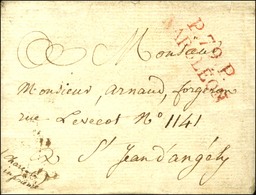 Monsieur
P. 79. P.
NAPOLÉON
Monsieur, Arnaud, forgeron
rue Levecot N° 1141
St Jean d'angély